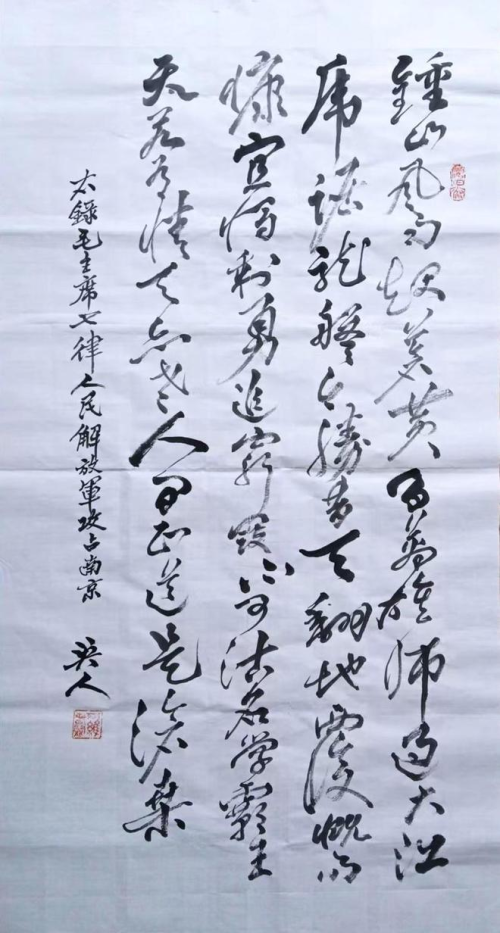 鍾山风雨起蒼黄百萬雄师过大江
虎踞龙盤今勝昔天翻地覆慨而
慷宜将剩勇追窮寇不可沽名学霸王
天若有情天亦老人间正道是滄桑
右錄毛主席七律人民解放軍攻占南京
人